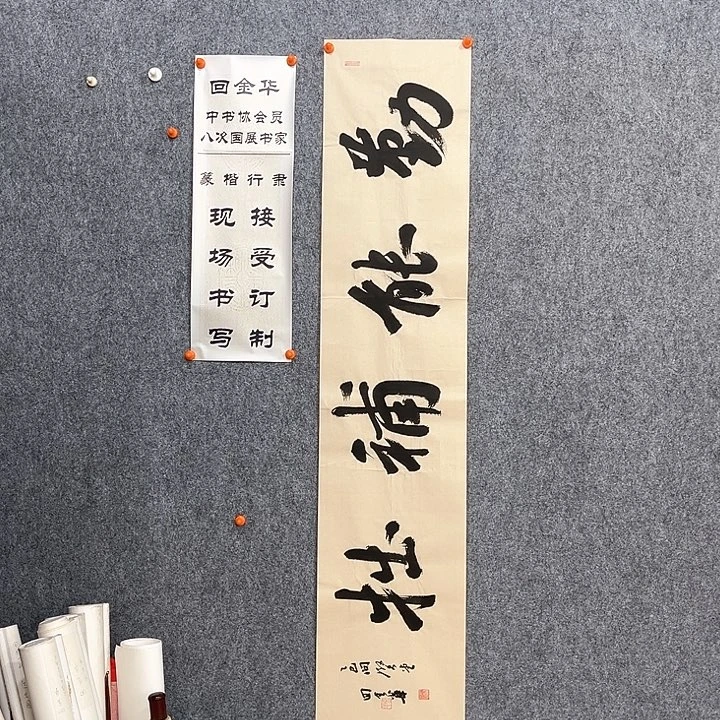 回金华
中书协会员
八次国展书家
篆楷行隶
现场书写
接受订制
勤能补拙